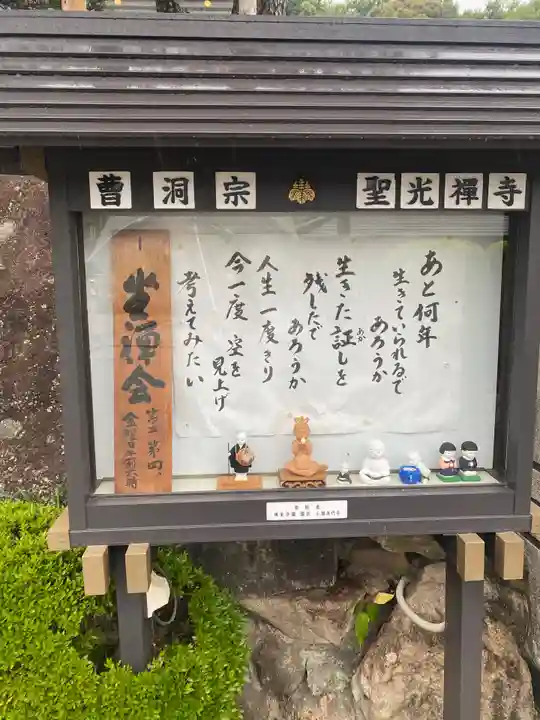 曹洞宗
聖光禅寺
あと何年
生きていられるで
あろうか
生きた証しを
あか
残したで
あろうか
人生一度きり
今一度 空を 見上げ
考えてみたい
坐禅会
第二 第四
金曜日 午前六時